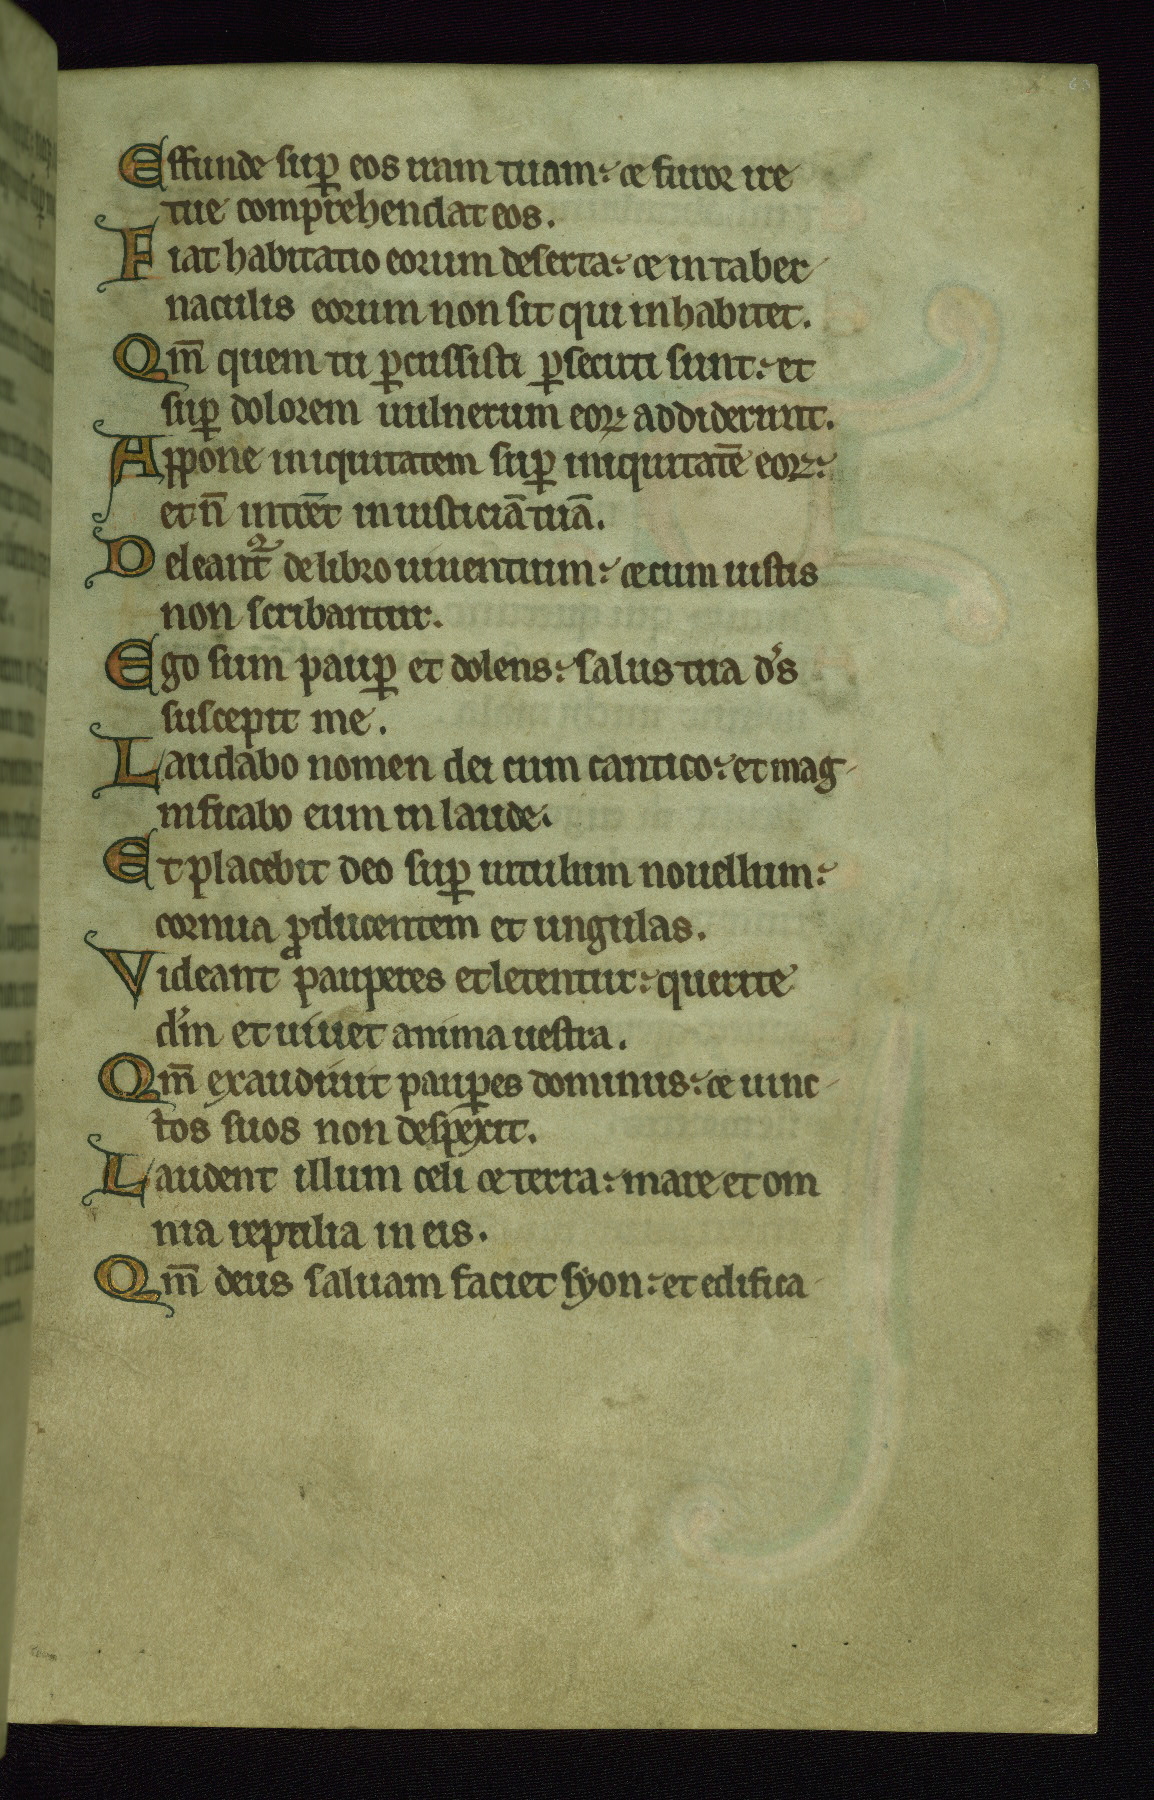 Effunde sup̱ eos iram tuam: ⁊ furor ire
tue comprehendat eos.
Fiat habitatio eorum deserta: ⁊ in taber
naculis eorum non sit qui inhabitet.
Qm̄ quem tu ꝑcussisti ꝑsecuti sunt: et
suꝑ dolorem uulnerum eoꝝ addiderunt.
Appone iniquitatem suꝑ iniquitatē eoꝝ:
et n̄ intrēt in iusticiā tuā.
Deleant᷑ de libro uiuentium: ⁊ cum iustis
non scribantur.
Ego sum pauꝑ et dolens: salus tua d's
suscepit me.
Laudabo nomen dei cum cantico: et mag
nificabo eum in laude.
Et placebit deo suꝑ uitulum nouellum:
cornua ꝓducentem et ungulas.
Videant pauperes et letentur: querite
d'm et uiuet anima uestra.
Qm̄ exaudiuit pauꝑes dominus: ⁊ uinc
tos suos non despexit.
Laudent illum celi ⁊ terra: mare et om
nia reptilia in eis.
Qm̄ deus saluam faciet syon: et edifica